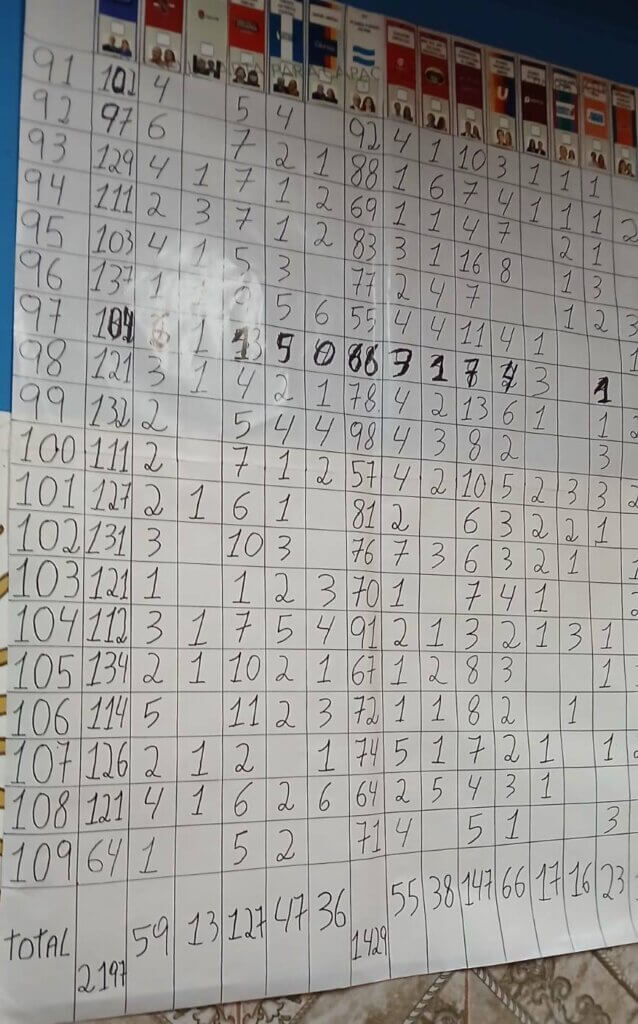 91 4 5 4 92 4 1 10 3 1 1 1
92 97 6 7 2 1 88 1 6 7 4 1 1 1 2
93 129 4 1 7 1 2 69 1 1 4 7 2 1
94 111 2 3 7 1 2 83 3 1 16 8 1 3
95 103 4 1 5 3 77 2 4 7 1 2 3
96 137 1 5 6 55 4 4 11 4 1 1
97 104 1 13 5 0 88 3 1 7 4 3 1
98 121 3 1 4 2 1 78 4 2 13 6 1 1 2
99 132 2 5 4 4 98 4 3 8 2 3
100 111 2 7 1 2 57 4 2 10 5 2 3 3 2
101 127 2 1 6 1 81 2 6 3 2 2 1
102 131 3 10 3 76 7 3 6 3 2 1 1
103 121 1 1 2 3 70 1 7 4 1 2
104 112 3 1 7 5 4 91 2 1 3 2 1 3 1
105 134 2 1 10 2 1 67 1 2 8 3 1 1
106 114 5 11 2 3 72 1 1 8 2 1
107 126 2 1 2 1 74 5 1 7 2 1 1 2
108 121 4 1 6 2 6 64 2 5 4 3 1
109 64 1 5 2 71 4 5 1 3
TOTAL 2197 59 13 127 47 36 1429 55 38 147 66 17 16 23